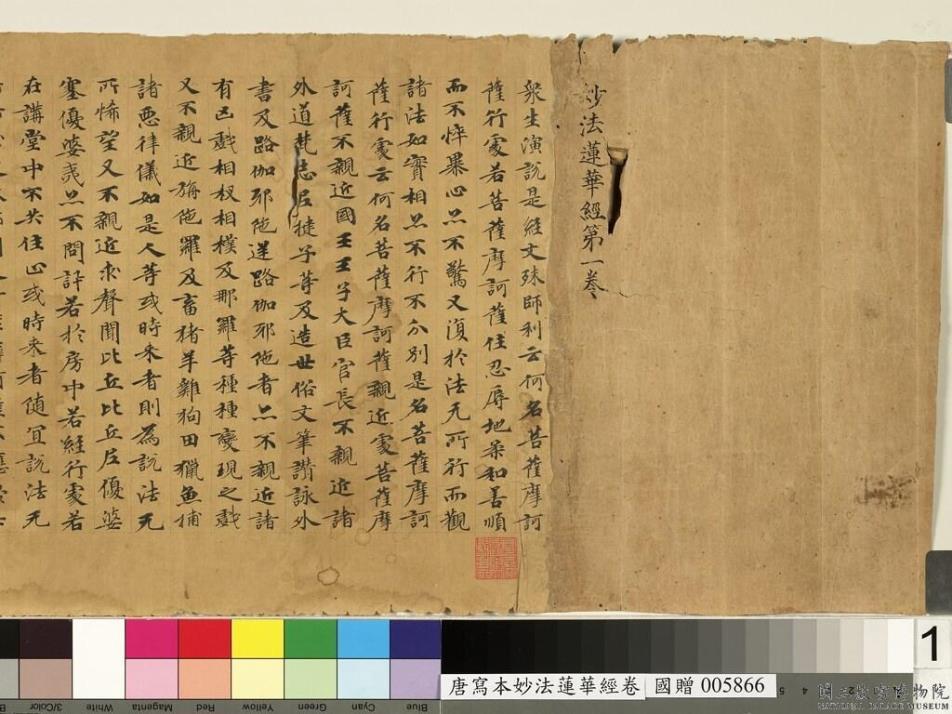 妙法蓮華經第一卷
衆生演說是経文殊師利云何名菩薩摩訶
薩行處若菩薩摩訶薩住忍辱地柔和善順
而不悴暴心亦不驚又復於法无所行而觀
諸法如實相亦不行不分別是名菩薩摩訶
薩行處云何名菩薩摩訶薩親近處菩薩摩
訶薩不親近國王王子大臣官長不親近諸
外道梵志尼揵子等及造世俗文筆讃詠外
書及路伽耶陁逆路伽耶陁者亦不親近諸
有凶戲相扠相撲及那羅等種種變現之戲
又不親近旃陁羅及畜猪羊雞狗田獵魚捕
諸惡律儀如是人等或時来者則為說法无
所悕望又不親近求聲聞比丘比丘尼優婆
塞優婆夷亦不問訊若於房中若経行處若
在講堂中不共住止或時来者随宜說法无
3/Color White Magenta Red Yellow Green Cyan Blue
唐寫本妙法蓮華經卷 國贈 005866
1
國立故宮博物院
NATIONAL PALACE MUSEUM